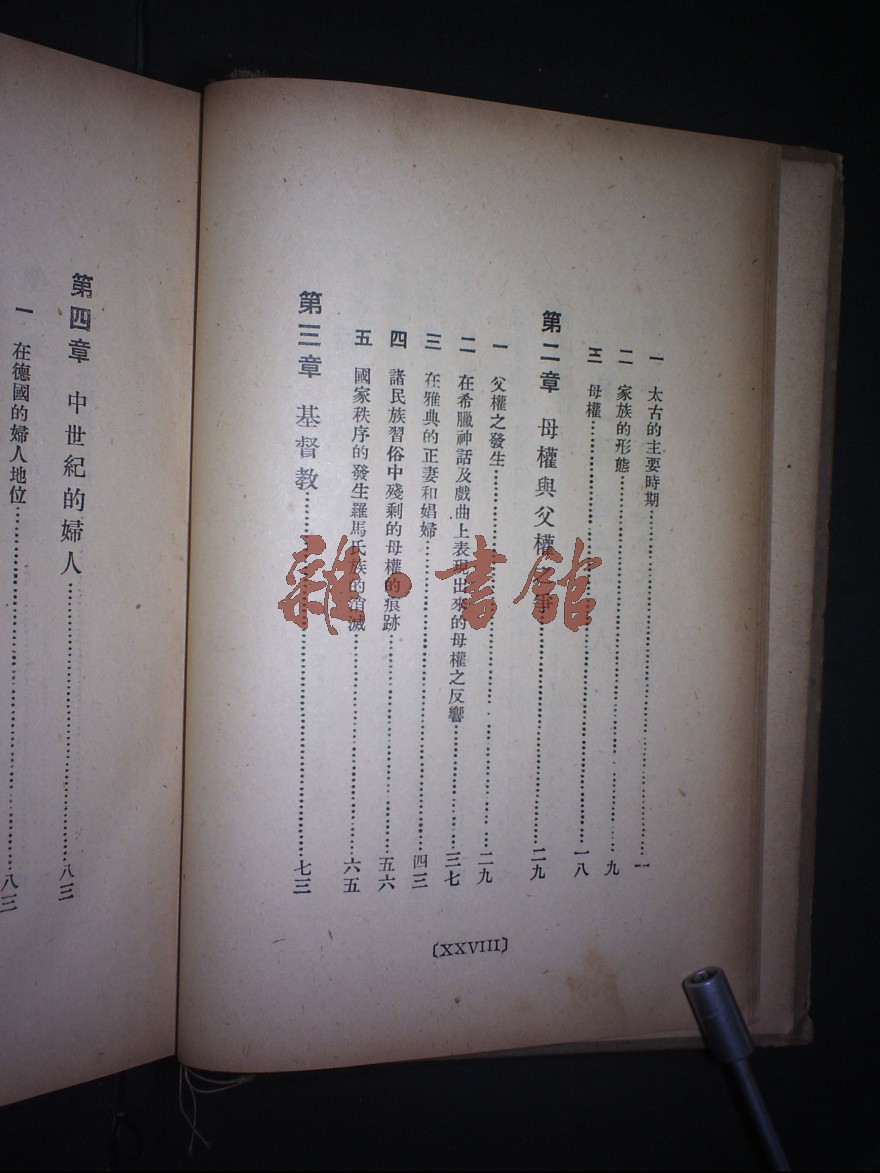 一 太古的主要時期……一
二 家族的形態……九
三 母權……一八
第二章 母權與父權之爭……二九
一 父權之發生……二九
二 在希臘神話及戲曲上表現出來的母權之反響……三七
三 在雅典的正妻和娼婦……四三
四 諸民族習俗中殘剩的母權的痕跡……五六
五 國家秩序的發生羅馬氏族的消滅……六五
第三章 基督教……七三
〔XXVIII〕
第四章 中世紀的婦人……八三
一 在德國的婦人地位……八三
雜·書館